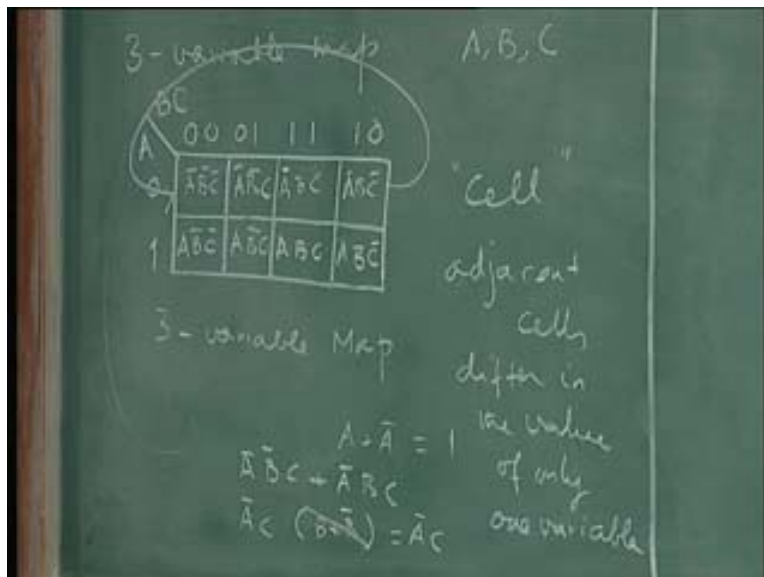 3-variable map A, B, C
BC
A 00 01 11 10
0 A̅B̅C̅ A̅B̅C A̅BC A̅BC̅
1 AB̅C̅ AB̅C ABC
3-variable Map
"Cell"
adjacent
cells
differ in
the value
of only
one variable
A + A̅ = 1
A̅B̅C + A̅BC
A̅C (B+B̅) = A̅C